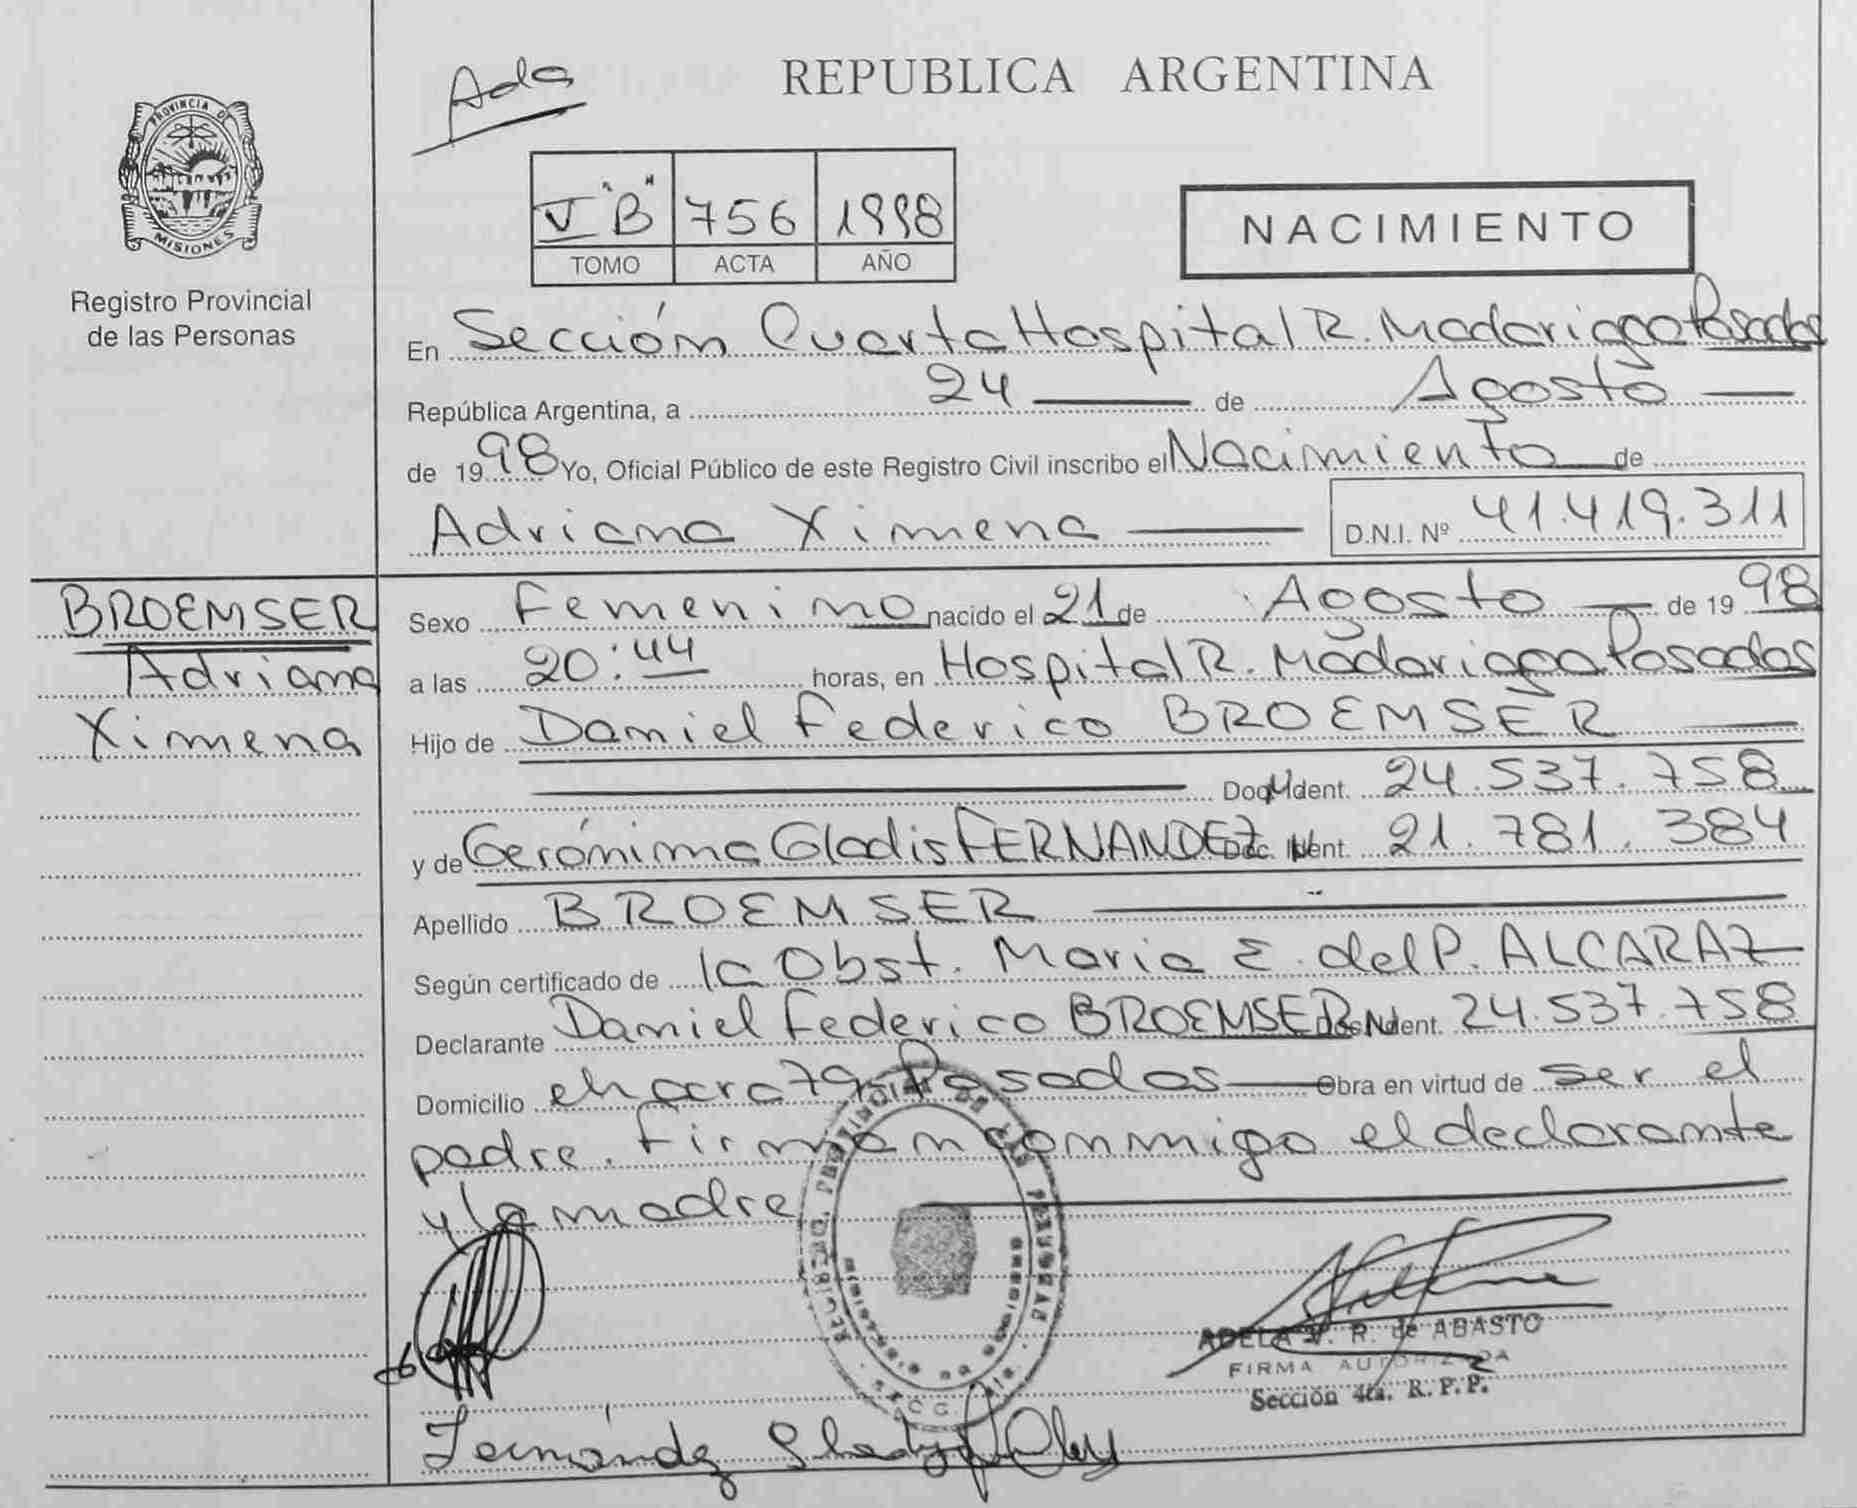 Ada
REPUBLICA ARGENTINA
PROVINCIA DE
MISIONES
Registro Provincial
de las Personas
V "B" 756 1998
TOMO ACTA AÑO
NACIMIENTO
En Sección Cuarta Hospital R. Madariaga Posadas
República Argentina, a 24 de Agosto
de 1998 Yo, Oficial Público de este Registro Civil inscribo el Nacimiento de
Adriana Ximena D.N.I. Nº 41.419.311
BROEMSER
Adriana
Ximena
Sexo Femenino nacido el 21 de Agosto de 1998
a las 20:44 horas, en Hospital R. Madariaga Posadas
Hijo de Daniel Federico BROEMSER
Doc. Ident. 24.537.758
y de Gerónima Gladis FERNANDEZ Doc. Ident. 21.781.384
Apellido BROEMSER
Según certificado de la Obst. Maria E. del P. ALCARAZ
Declarante Daniel Federico BROEMSER Doc. Ident. 24.537.758
Domicilio chacra 79 Posadas Obra en virtud de ser el
padre. Firman conmigo el declarante
y la madre
ADELA V. R. de ABASTO
FIRMA AUTORIZADA
Sección 4ta. R.P.P.
Fernández Gladys